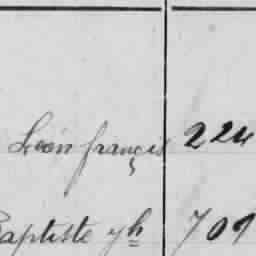 Léon françis 224
Baptiste yh 709